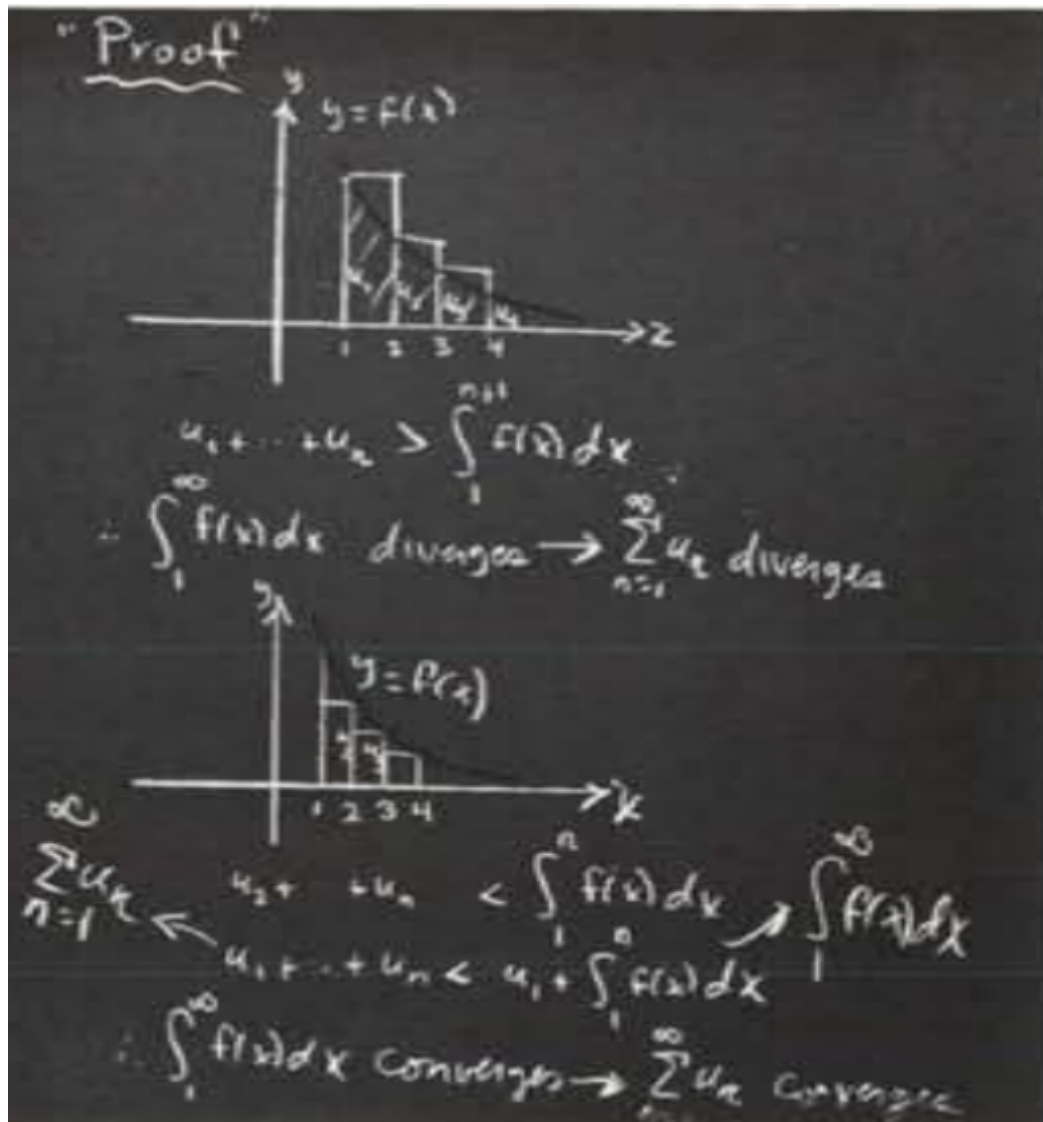 "Proof"
y
y = f(x)
u₁ u₂ u₃ u₄
1 2 3 4
x
u₁ + ··· + uₙ > ∫₁ⁿ⁺¹ f(x) dx
∴ ∫₁^∞ f(x) dx diverges → ∑ₙ₌₁^∞ uₙ diverges
y
y = f(x)
u₂ u₃
1 2 3 4
x
u₂ + + uₙ < ∫₁ⁿ f(x) dx
∑ₙ₌₁^∞ uₙ ← u₁ + ·· + uₙ < u₁ + ∫₁ⁿ f(x) dx → ∫₁^∞ f(x) dx
∴ ∫₁^∞ f(x) dx converges → ∑ₙ₌₁^∞ uₙ converges